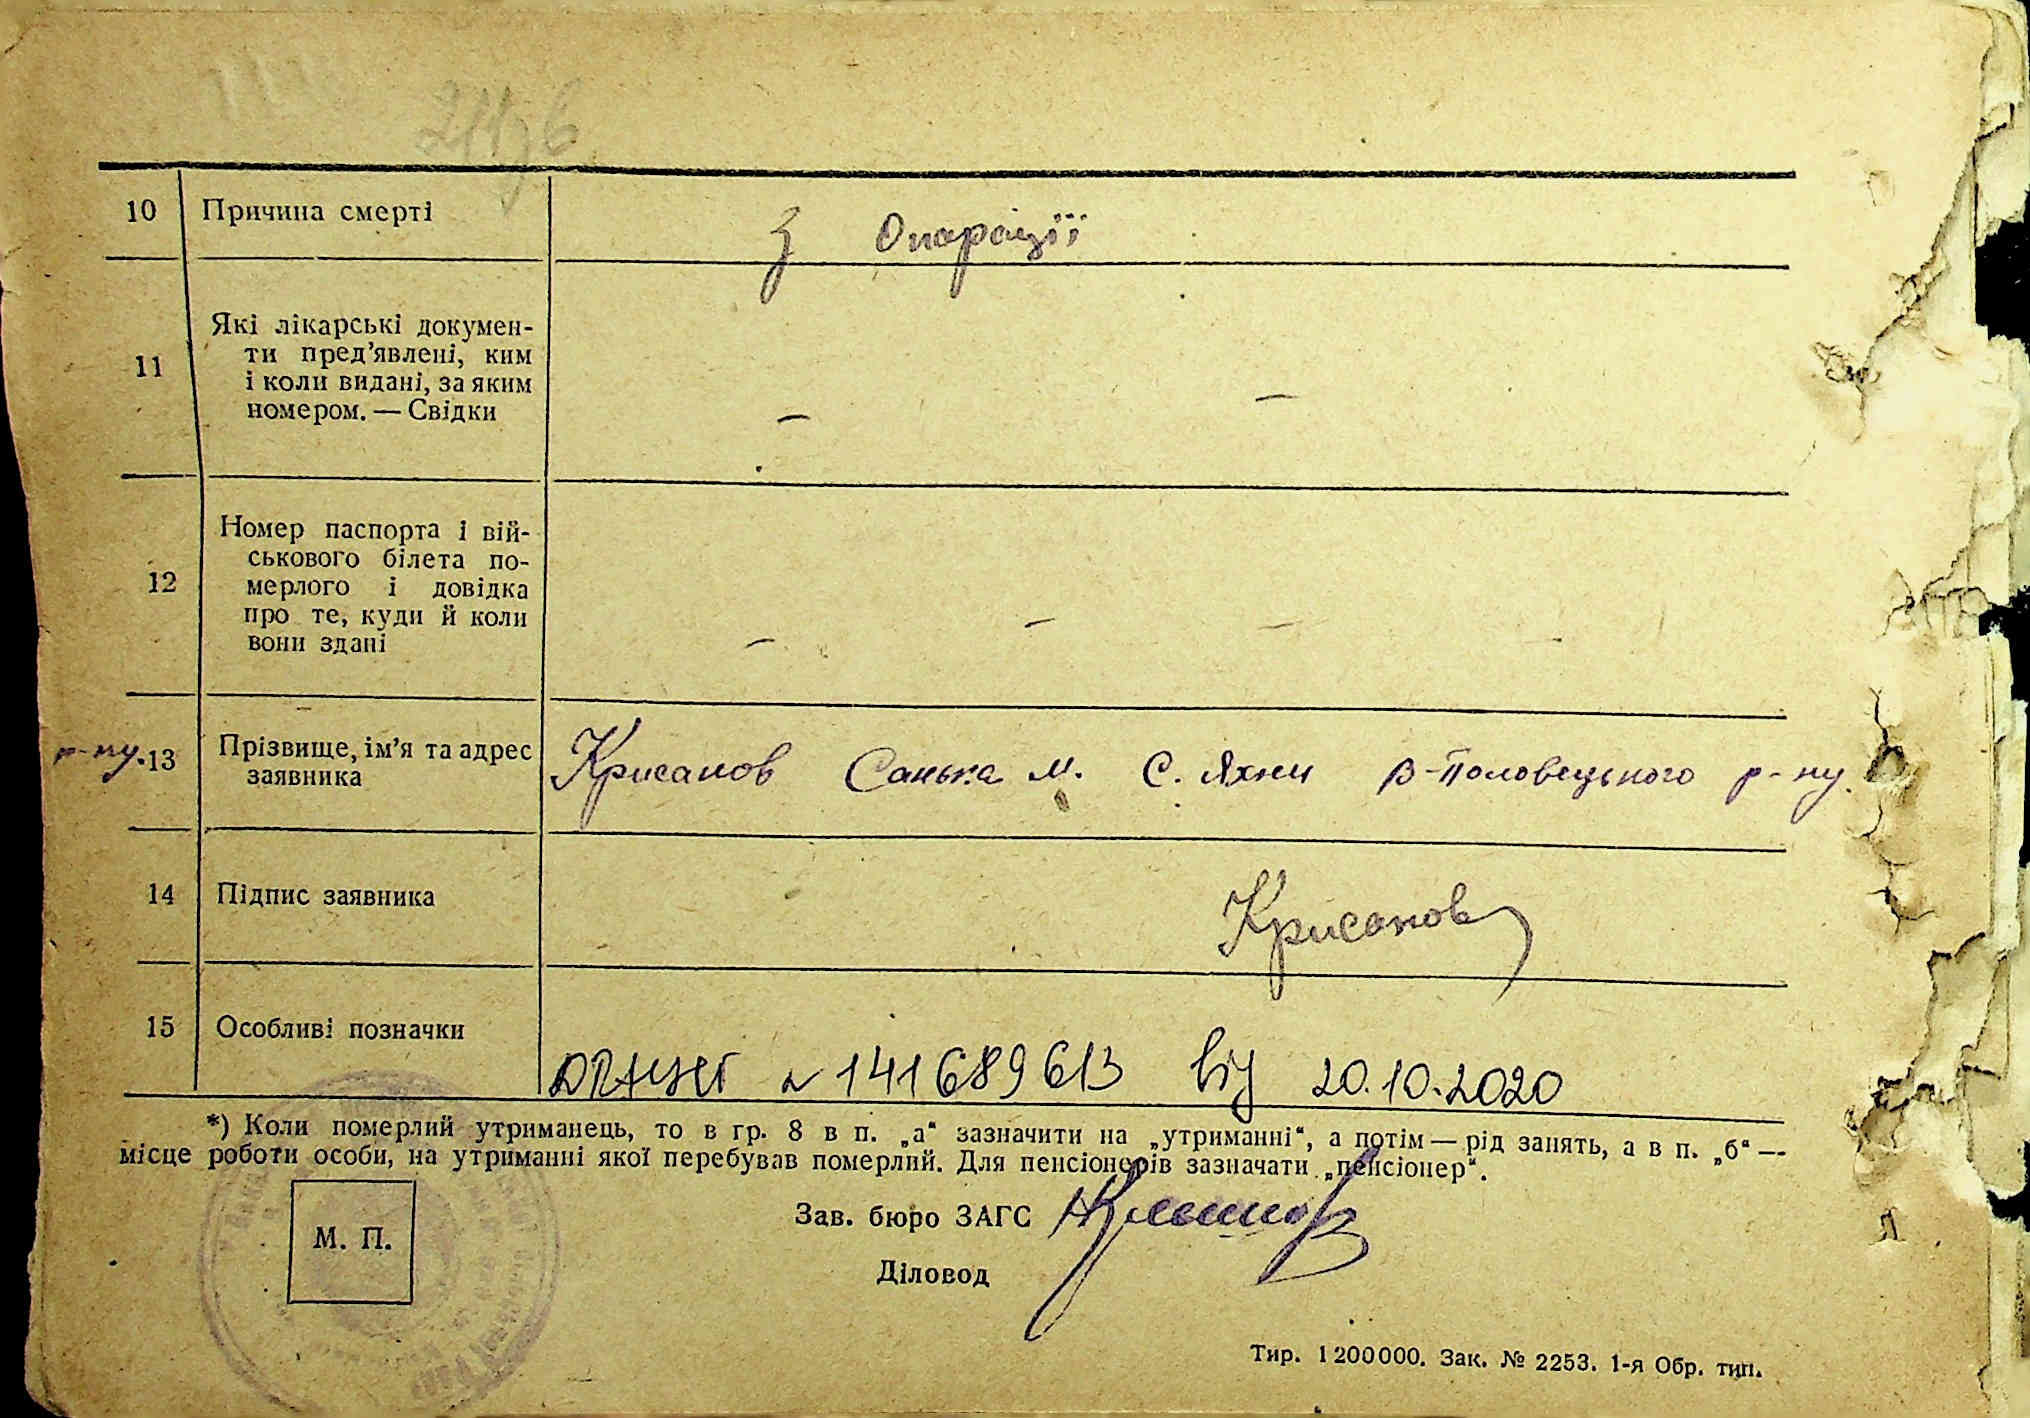 10 Причина смерті з Опарації
11 Які лікарські докумен-
ти пред'явлені, ким
і коли видані, за яким
номером. — Свідки — —
12 Номер паспорта і вій-
ськового білета по-
мерлого і довідка
про те, куди й коли
вони здані — — — —
р-ну. 13 Прізвище, ім'я та адрес
заявника Крисанов Санька М. С. Яхни В-Половецького р-ну.
14 Підпис заявника Крисанов
15 Особливі позначки
ДРАЦСГ № 141689613 від 20.10.2020
*) Коли померлий утриманець, то в гр. 8 в п. „а“ зазначити на „утриманні“, а потім — рід занять, а в п. „б“ —
місце роботи особи, на утриманні якої перебував померлий. Для пенсіонерів зазначати „пенсіонер“.
М. П.
Зав. бюро ЗАГС
Діловод
Тир. 1 200 000. Зак. № 2253. 1-я Обр. тип.